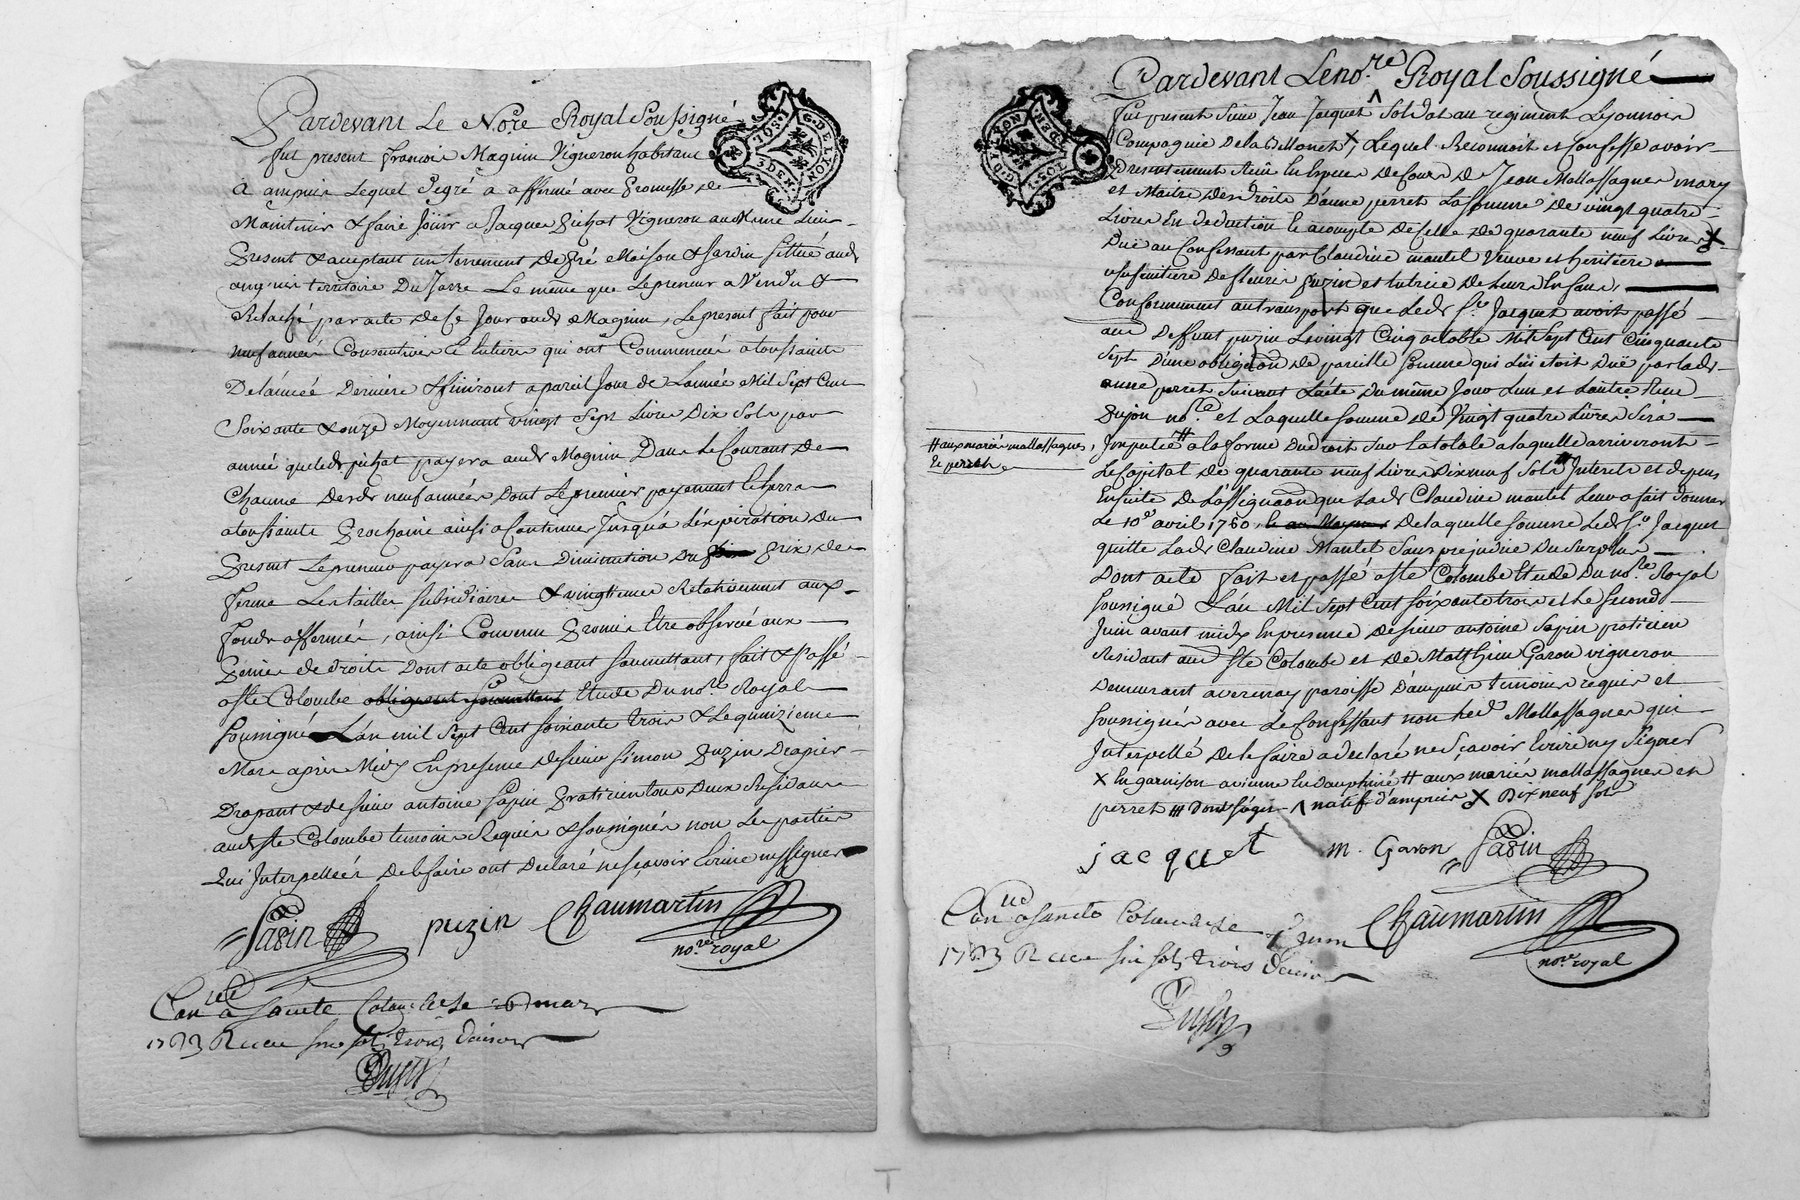 Pardevant Le No.re Royal Soussigné
fut present francois Magnin Vigneron habitant
a ampuis Lequel degré a affermé avec Promesse de
Maintenir & faire Jouir a Jacques pichat Vigneron au Meme Lieu
Present & acceptant un tenement de Pré Maison & Jardin sittué aud.
ampuis territoire Du Le même que Lepreneur a Vendu &
Relaché par acte de Ce Jour aud. Magnin, Le present fait pour
neuf années Consecutives & Entieres qui ont Commencées a toussaint
De l'année Derniere & finiront a pareil Jour de L'année Mil Sept Cent
Soixante & onze Moyennant vingt Sept Livres Dix Sols par
année que led. pichat payera aud. Magnin Dans Le Courant de
Chacune Desd. neuf années Dont Le premier payement Echerra
a toussaint Prochaine ainsi a Continuer Jusqu'a L'expiration du
Present Le preneur payera Sans Diminution Du Prix de
ferme Les tailles subsidiaires & vingtiemes Relativement aux
fonds affermés, ainsi Convenu Promis Etre observé aux
Peines de droit Dont acte obligeant soumettant, fait & Passé
a Ste Colombe obligeant soumettant Etude Du no.re Royal
soussigné L'an mil sept Cent soixante trois & Le quinzieme
Mars apres Midy En presence de sieur simon Puzin Drapier
Drapant & de sieur antoine sapin Praticien tous Deux Residans
aud. Ste Colombe temoins Requis & soussignés non Les parties
Qui Interpellées De le faire ont Declaré ne sçavoir Ecrire ny signer
Sapin puzin Chaumartin
no.re royal
Con.lé a Sainte Colombe Le mars
1763 Recu six sols trois deniers
Pardevant Le no.re Royal Soussigné
fut present Sieur Jean Jacquet ^ Soldat au regiment Lyonnois
Compagnie De la X, Lequel Reconnoit et Confesse avoir
Presentement Reçu En Especes De Cours De Jean Mallassagnes mary
et Maitre Des Droits D'anne perret La Somme De vingt quatre
Livres En Deduction & acompte De Celle De quarante neuf Livres X
Düe au Confessant par Claudine mantel Veuve et heritiere
usufruitiere De fleurie puzin et tutrice De Leurs Enfans,
Conformement au transport que Led. S.r Jacquet avoit passé
aud. Deffunt puzin Le vingt Cinq octobre Mil Sept Cent Cinquante
Sept D'une obligaon De pareille Somme qui Lui etoit Düe par lad.
anne perret Suivant L'acte Du même Jour L'un et L'autre Reçus
Dujon no.re et Laquelle Somme De Vingt quatre Livres Sera
Imputée # a la forme Du Droit Sur La totale a laquelle arriveront
# aux mariés mallassagnes
& perret
Le Capital De quarante neuf Livres Dix neuf Sols Interets et Depens
Ensuite De L'assignaon que Lad. Claudine mantel Leur a fait Donner
Le 10.e avril 1760, De laquelle Somme Led. S.r Jacquet
quitte Lad. Claudine Mantel Sans prejudice Du Surplus
Dont acte fait et passé a Ste Colombe Etude Du no.re Royal
Soussigné L'an Mil Sept Cent Soixante trois et Le Second
Juin avant midy En presence De Sieur antoine Sapin praticien
Residant aud. Ste Colombe et De Matthieu Garon vigneron
Demeurant a verenay paroisse D'ampuis temoins requis et
Soussignés avec Le Confessant non Led. Mallassagnes qui
Interpellé De le faire a declaré ne sçavoir Ecrire ny Signer
X En garnison a vienne En Dauphiné # aux mariés mallassagnes et
perret ### Dont S'agit ^ natif d'ampuis X Dix neuf sols
jacquet m. Garon Sapin
Chaumartin
no.re royal
Con.lé a Sancte Colombe Le juin
1763 Recu six sols trois deniers